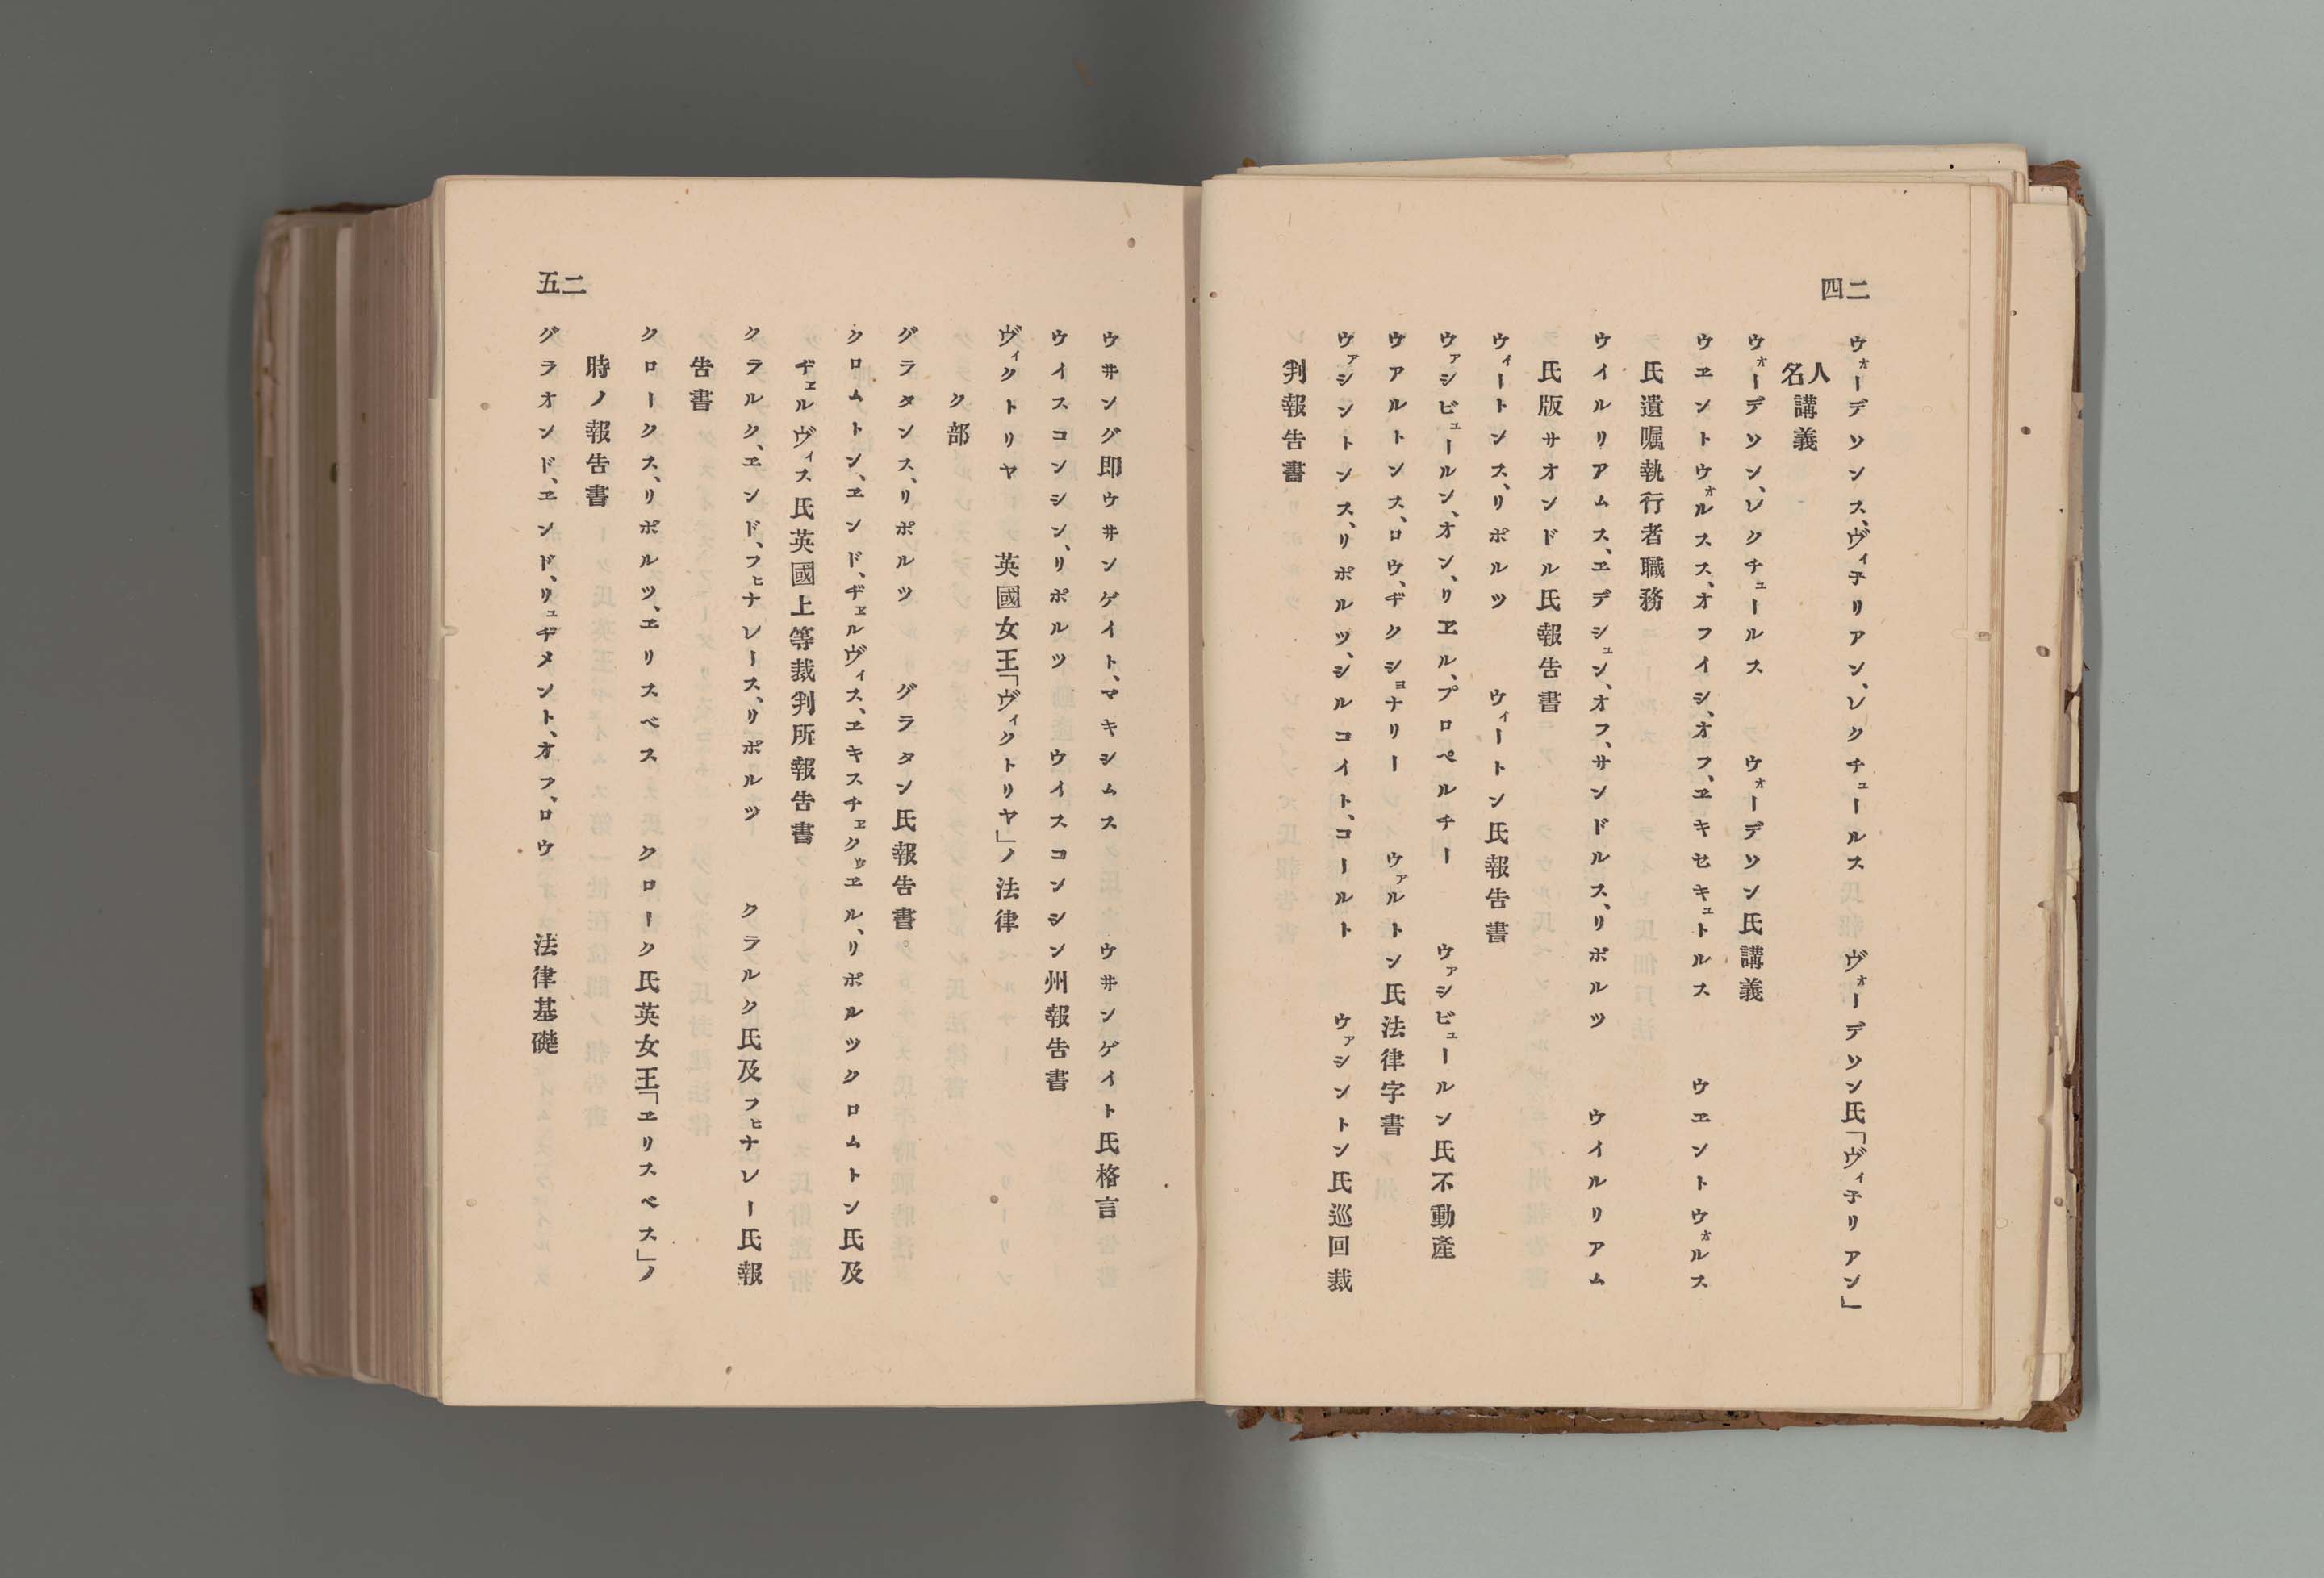 二四
ウォーデソンス、ヴィ子リアン、レクチュールス　ヴォーデソン氏「ヴィ子リアン」
人名講義
ウォーデソン、レクチュールス　ウォーデソン氏講義
ウヱントウォルスス、オフイシ、オフ、ヱキセキュトルス　ウヱントウォルス
氏遺嘱執行者職務
ウイルリアムス、ヱデシュン、オフ、サンドルス、リポルツ　ウイルリアム
氏版サオンドル氏報告書
ウィートンス、リポルツ　ウィートン氏報告書
ウァシビュールン、オン、リヱル、プロペルチー　ウァシビュールン氏不動產
ウアルトンス、ロウ、ヂクショナリー　ウァルトン氏法律字書
ウァシントンス、リポルツ、シルコイト、コールト　ウァシントン氏巡回裁
判報告書
ウ井ング即ウ井ンゲイト、マキシムス　ウ井ンゲイト氏格言
ウイスコンシン、リポルツ　ウイスコンシン州報告書
ヴィクトリヤ　英國女王「ヴィクトリヤ」ノ法律
ク部
グラタンス、リポルツ　グラタン氏報告書
クロムトン、ヱンド、ヂヱルヴィス、ヱキスチヱクウヱル、リポルツクロムトン氏及
ヂヱルヴィス氏英國上等裁判所報告書
クラルク、ヱンド、フヒナレース、リポルツ　クラルク氏及フヒナレー氏報
告書
クロークス、リポルツ、ヱリスベス　クローク氏英女王「ヱリスベス」ノ
時ノ報告書
グラオンド、ヱンド、リュヂメント、オフ、ロウ　法律基礎
二五